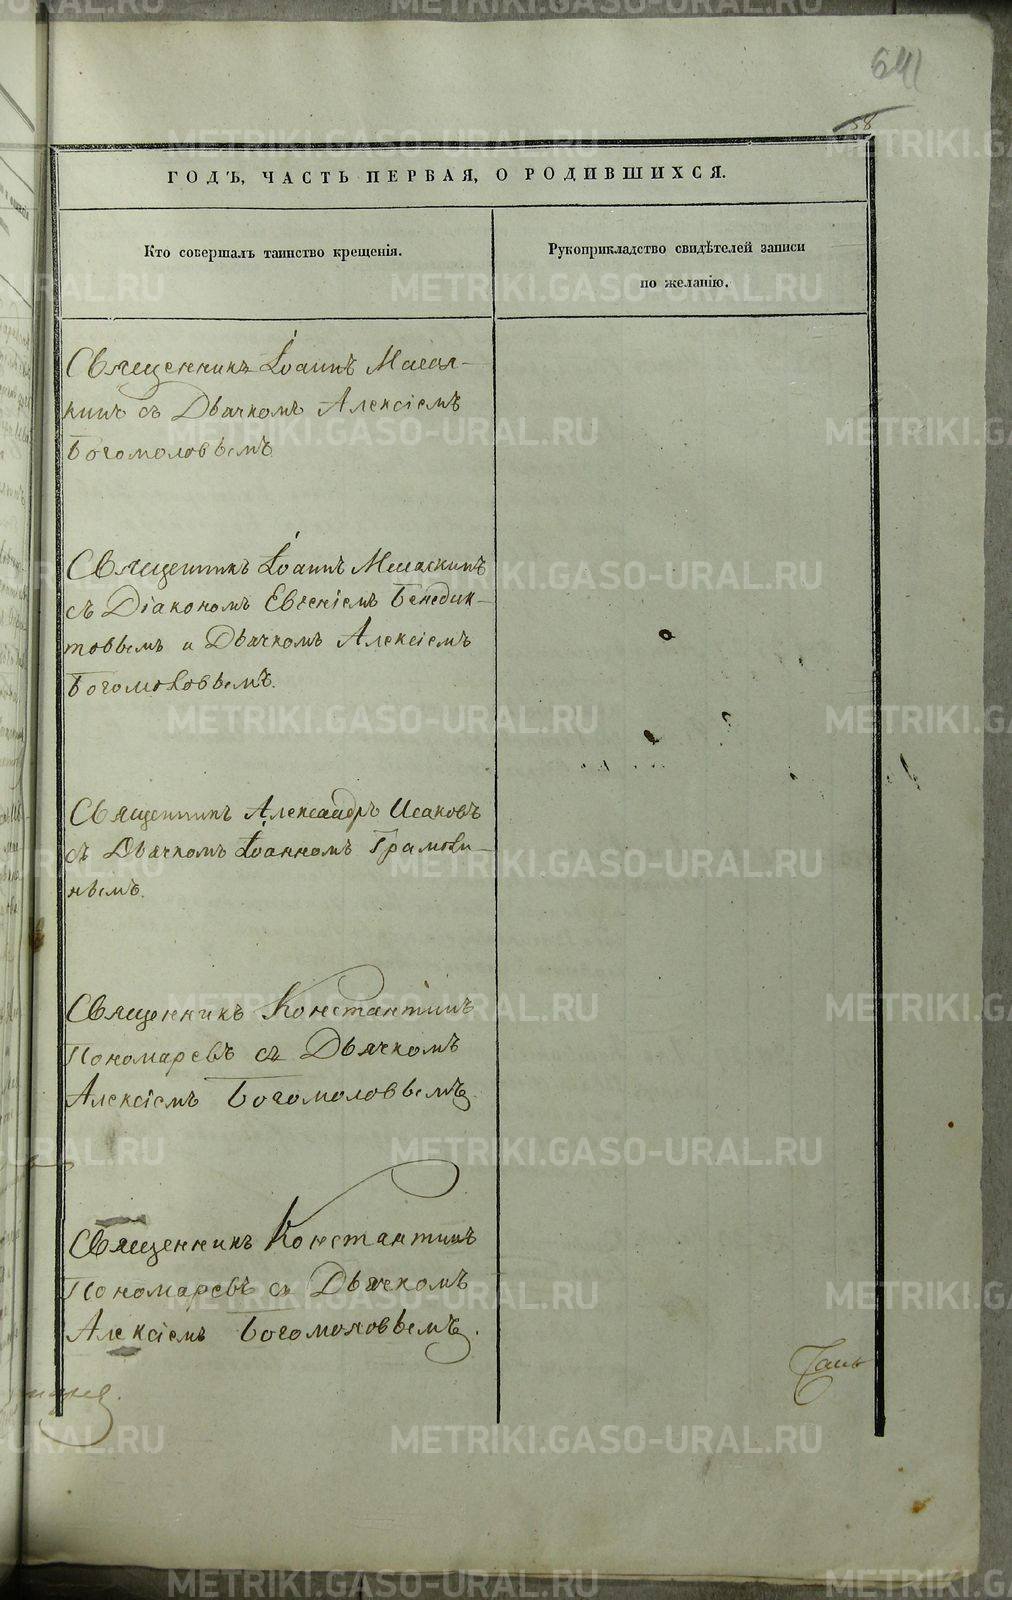 641
58
ГОДЪ, ЧАСТЬ ПЕРВАЯ, О РОДИВШИХСЯ.
Кто совершалъ таинство крещенія.
Рукоприкладство свидѣтелей записи
по желанію.
Священникъ Іоаннъ
съ Дьячкомъ Алексіемъ
Богомоловымъ
Священникъ Іоаннъ
съ Діакономъ Евгеніемъ Бенедик-
товымъ и Дьячкомъ Алексіемъ
Богомоловымъ.
Священникъ Александръ Исаковъ
съ Дьячкомъ Іоанномъ Грамоли-
нымъ.
Священникъ Константинъ
Пономаревъ съ Дьячкомъ
Алексіемъ Богомоловымъ.
Священникъ Константинъ
Пономаревъ съ Дьячкомъ
Алексіемъ Богомоловымъ.
METRIKI.GASO-URAL.RU